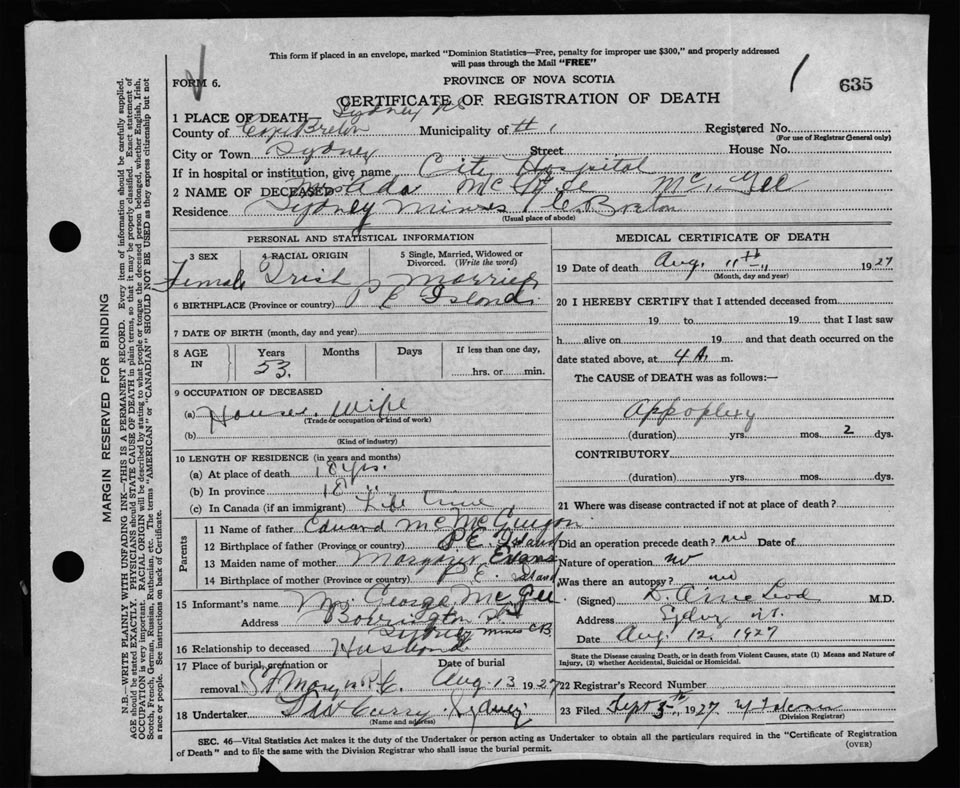 This form if placed in an envelope, marked "Dominion Statistics—Free, penalty for improper use $300," and properly addressed
will pass through the Mail "FREE"
FORM 6.
PROVINCE OF NOVA SCOTIA
635
CERTIFICATE OF REGISTRATION OF DEATH
1 PLACE OF DEATH Sydney NS
County of Cape Breton Municipality of # 1 Registered No.
(For use of Registrar General only)
City or Town Sydney Street House No.
If in hospital or institution, give name City Hospital
2 NAME OF DECEASED McGee
Residence Sydney Mines C. Breton
(Usual place of abode)
PERSONAL AND STATISTICAL INFORMATION
3 SEX 4 RACIAL ORIGIN 5 Single, Married, Widowed or Divorced. (Write the word)
Female Irish Married
6 BIRTHPLACE (Province or country) P E Island
7 DATE OF BIRTH (month, day and year)
8 AGE IN Years Months Days If less than one day,
53. hrs. or min.
9 OCCUPATION OF DECEASED
(a) House Wife
(Trade or occupation or kind of work)
(b)
(Kind of industry)
10 LENGTH OF RESIDENCE (in years and months)
(a) At place of death 18 yrs.
(b) In province 18 "
(c) In Canada (if an immigrant) Life time
Parents
11 Name of father Edward
12 Birthplace of father (Province or country) P.E. Island
13 Maiden name of mother Margaret Evans
14 Birthplace of mother (Province or country) P.E. Island
15 Informant's name George McGee
Address St
Sydney Mines C.B.
16 Relationship to deceased Husband
17 Place of burial, cremation or removal Date of burial
St Mary's P.E. Aug. 13 1927
18 Undertaker Curry Sydney
(Name and address)
MEDICAL CERTIFICATE OF DEATH
19 Date of death Aug. 11th 1927
(Month, day and year)
20 I HEREBY CERTIFY that I attended deceased from
19 to 19 that I last saw
h alive on 19 and that death occurred on the
date stated above, at 4 A. m.
The CAUSE of DEATH was as follows:—
Appoplexy
(duration) yrs. mos. 2 dys.
CONTRIBUTORY
(duration) yrs. mos. dys.
21 Where was disease contracted if not at place of death?
Did an operation precede death? no Date of
Nature of operation no
Was there an autopsy? no
(Signed) M.D.
Address Sydney
Date Aug 12. 1927
State the Disease causing Death, or in death from Violent Causes, state (1) Means and Nature of
Injury, (2) whether Accidental, Suicidal or Homicidal.
22 Registrar's Record Number
23 Filed Sept 1927
(Division Registrar)
SEC. 46—Vital Statistics Act makes it the duty of the Undertaker or person acting as Undertaker to obtain all the particulars required in the "Certificate of Registration
of Death" and to file the same with the Division Registrar who shall issue the burial permit.
(OVER)
MARGIN RESERVED FOR BINDING
N.B.—WRITE PLAINLY WITH UNFADING INK—THIS IS A PERMANENT RECORD. Every item of information should be carefully supplied.
AGE should be stated EXACTLY. PHYSICIANS should STATE CAUSE OF DEATH in plain terms, so that it may be properly classified. Exact statement of
OCCUPATION is very important. RACIAL ORIGIN will be described by stating to what people or tongue the deceased person belonged, whether English, Irish,
Scotch, French, German, Russian, Ruthenian, etc. The terms "AMERICAN" or "CANADIAN" SHOULD NOT BE USED as they express citizenship but not
a race or people. See instructions on back of Certificate.